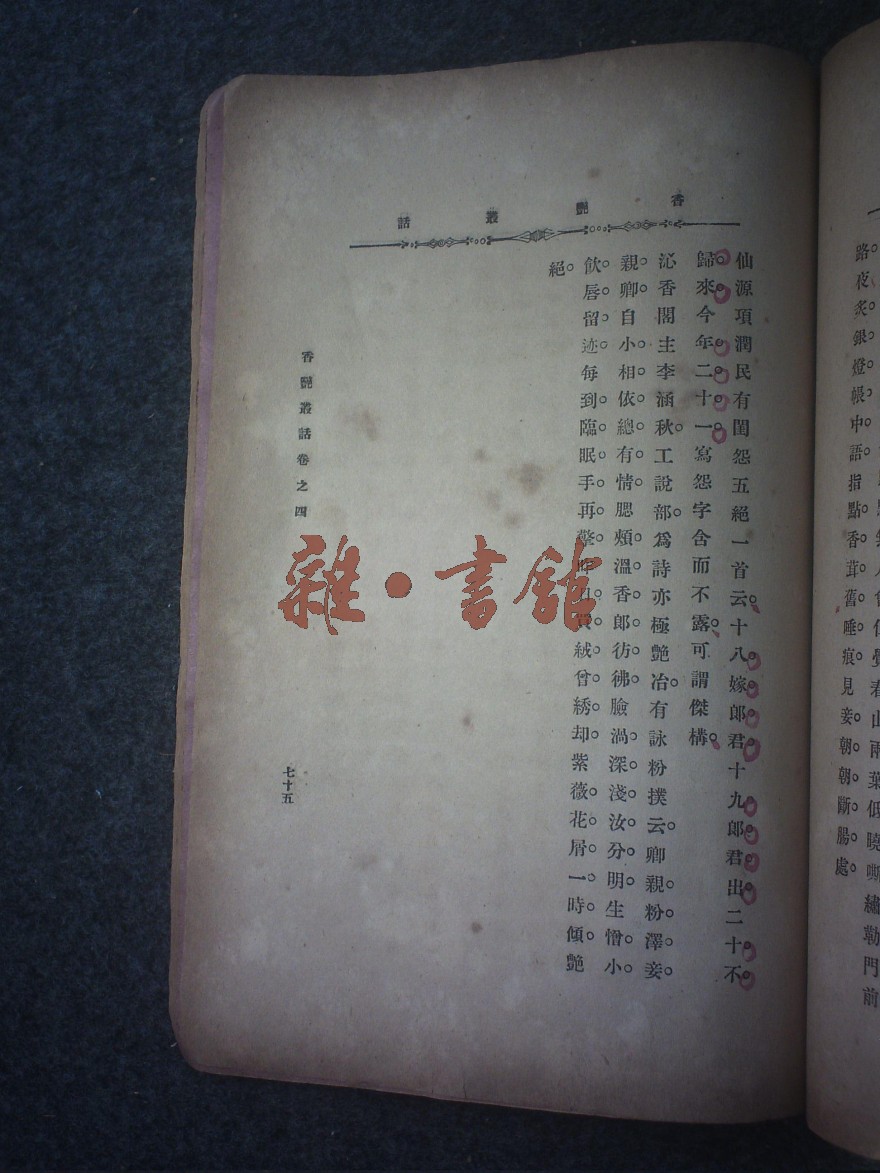 香艷叢話
低曉嘶繡勒門前
路夜炙銀燈帳中語指點香茸舊睡痕見妾朝朝斷腸處。
仙源項潤民有閨怨五絕一首云。十八嫁郎君。十九郎君出。二十不
歸來。今年二十一。寫怨字含而不露。可謂傑構。
沁香閣主李涵秋。工說部。爲詩亦極艷冶。有詠粉撲云。卿親粉澤妾
親卿。自小相依總有情。腮頰溫香郎彷彿。臉渦深淺汝分明。生憎小
飲唇留迹。每到臨眠手再擎。絨曾綉却。紫薇花屑一時傾。艷
絕。
香艷叢話卷之四
七十五
雜·書館